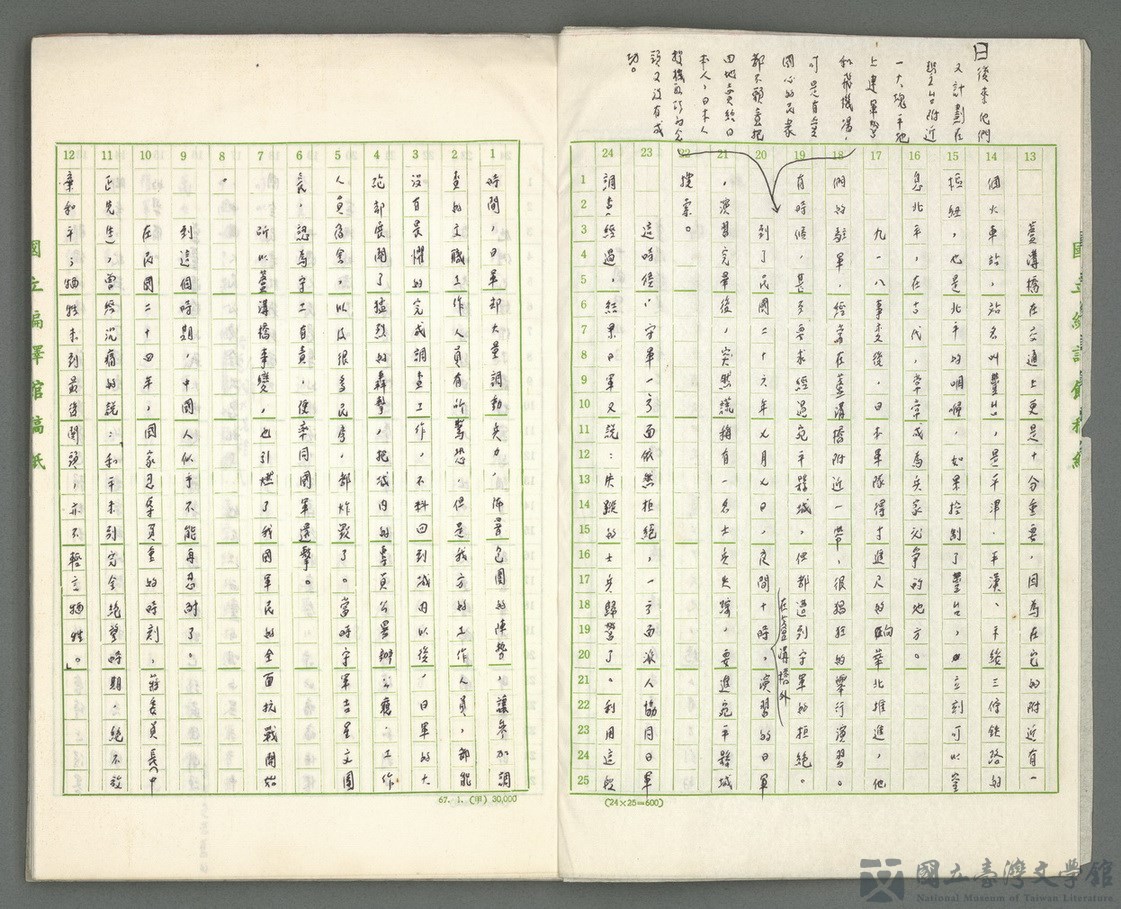 日後來他們
又計劃在
豐台附近
一大塊平地
上建軍營
和飛機場
可是有愛
國心的民衆
都不願意把
田地賣給日
本人，日本人
投機取巧的念
頭又沒有成
功。
蘆溝橋在交通上更是十分重要，因爲在它的附近有一
個火車站，站名叫豐台，是平津、平漢、平綏三條鐵路的
樞紐，也是北平的咽喉，如果控制了豐台，立刻可以窒
息北平，在古代，常常成為兵家必爭的地方。
九一八事變後，日本軍隊得寸進尺的向華北推進，他
們的駐軍，經常在蘆溝橋附近一帶，很猖狂的舉行演習。
有時候，甚至要求經過宛平縣城，但都遇到守軍的拒絕。
到了民國二十六年七月七日，夜間十時，在蘆溝橋外演習的日軍
，演習完畢後，突然謊稱有一名士兵失蹤，要進宛平縣城
搜索。
這時候，守軍一方面依然拒絕，一方面派人協同日軍
調查經過，結果日軍又說：失蹤的士兵歸營了。利用這段
時間，日軍卻大量調動兵力，佈署包圍的陣勢，讓參加調
查的文職工作人員有所驚恐，但是我方的工作人員，都能
沒有畏懼的完成調查工作，不料回到城內以後，日軍的大
砲卻展開了猛烈的轟擊，把城內的專員公署辦公廳、工作
人員宿舍，以及很多民房，都炸毀了。當時守軍吉星文團
長，認為守土有責，便率同國軍還擊。
所以蘆溝橋事變，也引燃了我國軍民的全面抗戰開始
。
到這個時期，中國人似乎不能再忍耐了。
在民國二十四年，國家忍辱負重的時刻，蔣委員長（中
正先生），曾經沉痛的說：「和平未到完全絕望時期，絕不放
棄和平；犧牲未到最後關頭，亦不輕言犧牲。」
國立編譯館稿紙
國立編譯館稿紙
13 14 15 16 17 18 19 20 21 22 23 24
1 2 3 4 5 6 7 8 9 10 11 12 13 14 15 16 17 18 19 20 21 22 23 24 25
1 2 3 4 5 6 7 8 9 10 11 12
(24×25=600)
67. 1. (甲) 30,000
國立臺灣文學館
National Museum of Taiwan Literature